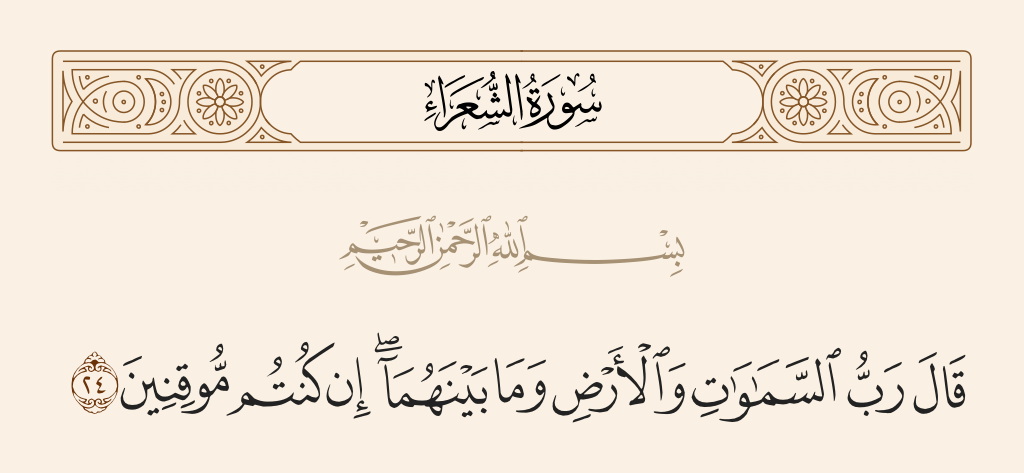 سُورَةُ الشُّعَرَاءِ
بِسْمِ ٱللَّهِ ٱلرَّحْمَٰنِ ٱلرَّحِيمِ
قَالَ رَبُّ ٱلسَّمَٰوَٰتِ وَٱلْأَرْضِ وَمَا بَيْنَهُمَآ ۖ إِن كُنتُم مُّوقِنِينَ ٢٤